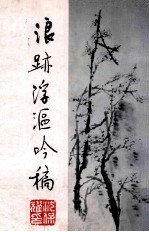 浪跡浮漚吟稿